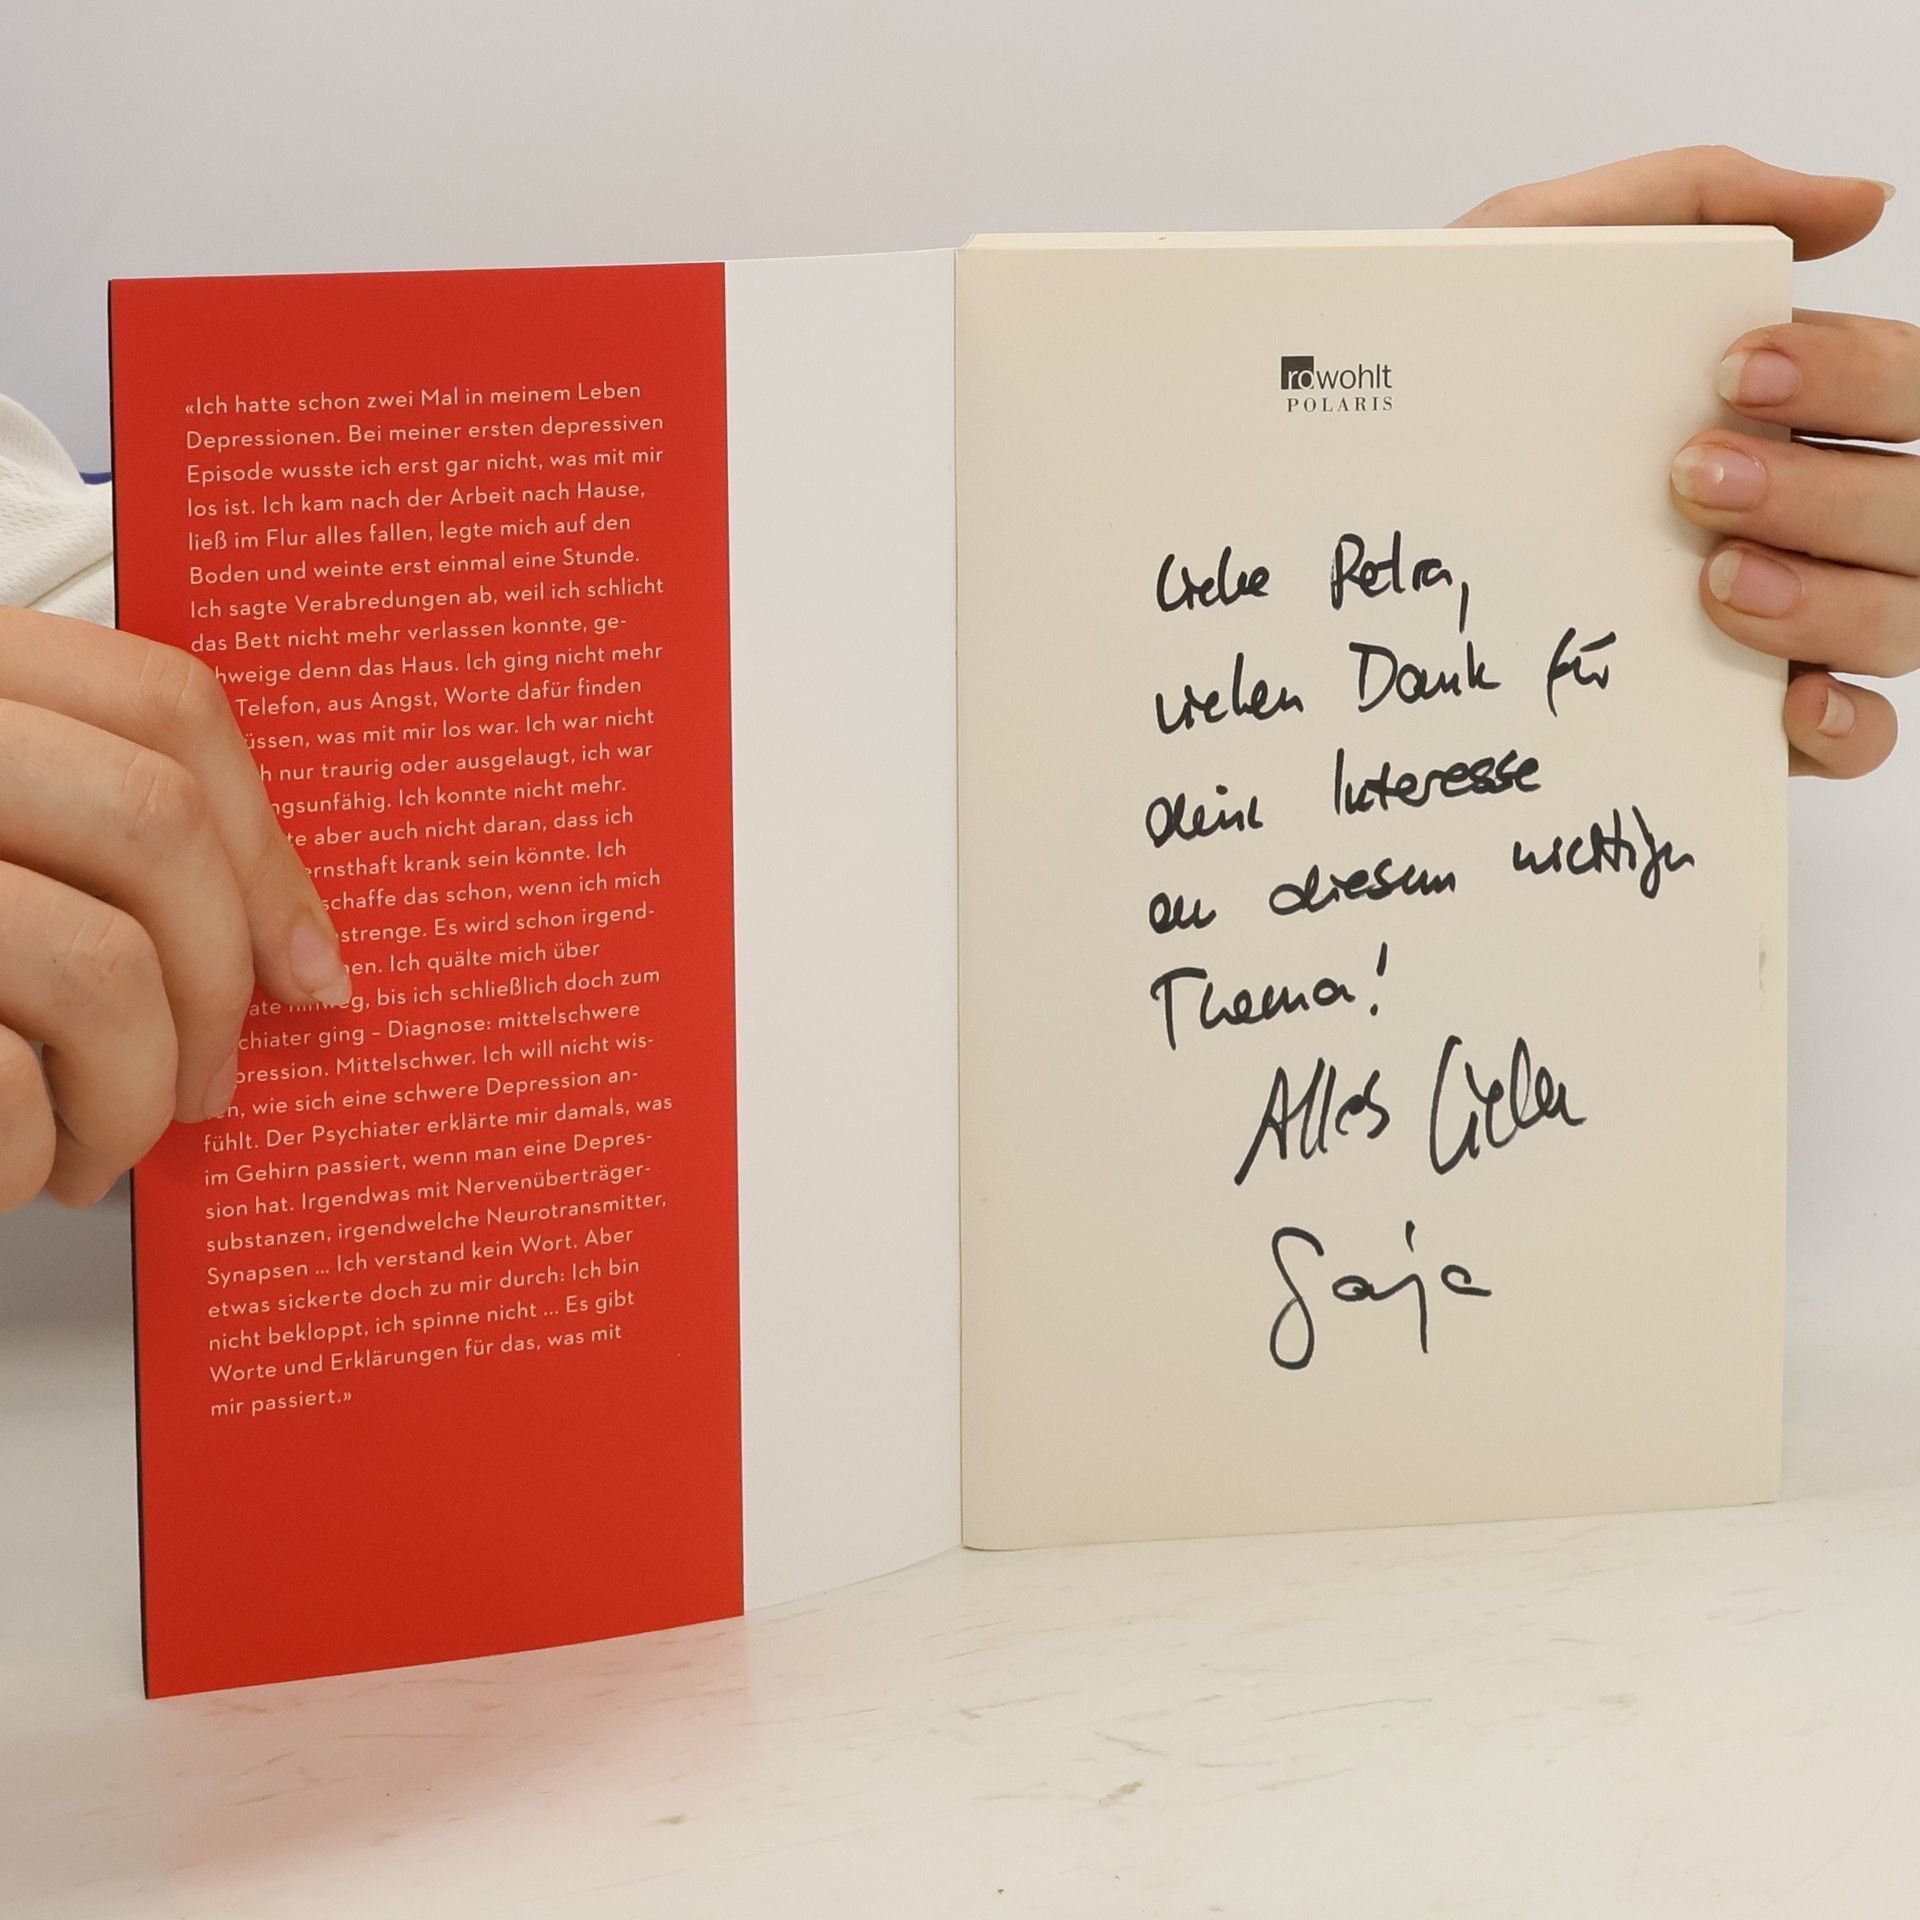 «Ich hatte schon zwei Mal in meinem Leben
Depressionen. Bei meiner ersten depressiven
Episode wusste ich erst gar nicht, was mit mir
los ist. Ich kam nach der Arbeit nach Hause,
ließ im Flur alles fallen, legte mich auf den
Boden und weinte erst einmal eine Stunde.
Ich sagte Verabredungen ab, weil ich schlicht
das Bett nicht mehr verlassen konnte, ge-
hweige denn das Haus. Ich ging nicht mehr
Telefon, aus Angst, Worte dafür finden
üssen, was mit mir los war. Ich war nicht
h nur traurig oder ausgelaugt, ich war
ngsunfähig. Ich konnte nicht mehr.
te aber auch nicht daran, dass ich
ernsthaft krank sein könnte. Ich
schaffe das schon, wenn ich mich
strenge. Es wird schon irgend-
en. Ich quälte mich über
ate hinweg, bis ich schließlich doch zum
chiater ging – Diagnose: mittelschwere
pression. Mittelschwer. Ich will nicht wis-
n, wie sich eine schwere Depression an-
fühlt. Der Psychiater erklärte mir damals, was
im Gehirn passiert, wenn man eine Depres-
sion hat. Irgendwas mit Nervenüberträger-
substanzen, irgendwelche Neurotransmitter,
Synapsen ... Ich verstand kein Wort. Aber
etwas sickerte doch zu mir durch: Ich bin
nicht bekloppt, ich spinne nicht ... Es gibt
Worte und Erklärungen für das, was mit
mir passiert.»
rowohlt
POLARIS
Liebe Petra,
vielen Dank für
dein Interesse
an diesem wichtigen
Thema!
Alles Liebe
Sonja